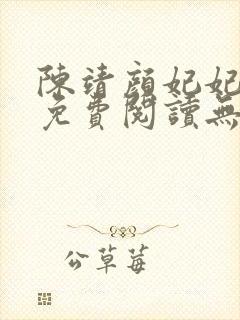 陳靖顏妃妃
免費閱讀無
公草莓